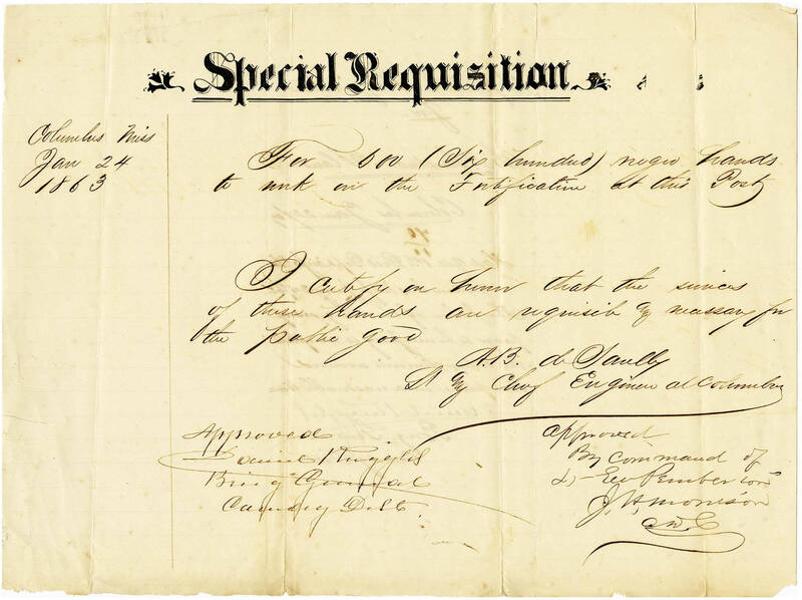 Special Requisition
Columbus Miss
Jan 24
1863
For 600 (Six hundred) negro hands
to work on the Fortification at this Post
I certify on honor that the services
of these hands are requisite & necessary for
the public good
A.B. de Saulles
Chief Engineer at Columbus
Approved
Daniel Ruggles
Brig General
Comdg Dist.
approved
By command of
Lt Gen Pemberton
J. H. Morrison
ADC